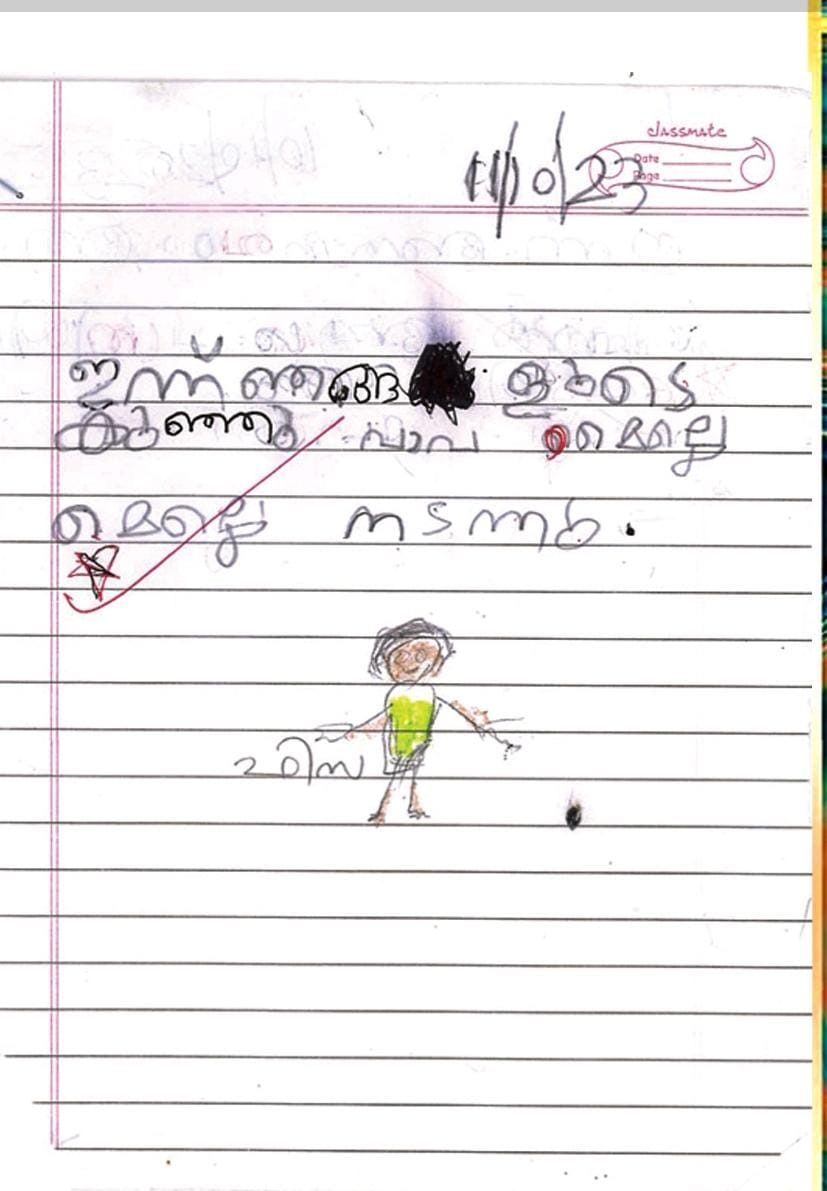 classmate
Date
Page
11/10/23
ഇന്ന് ഞങ്ങ ളുടെ
കുഞ്ഞു വാവ മെല്ലെ
മെല്ലെ നടന്നു.